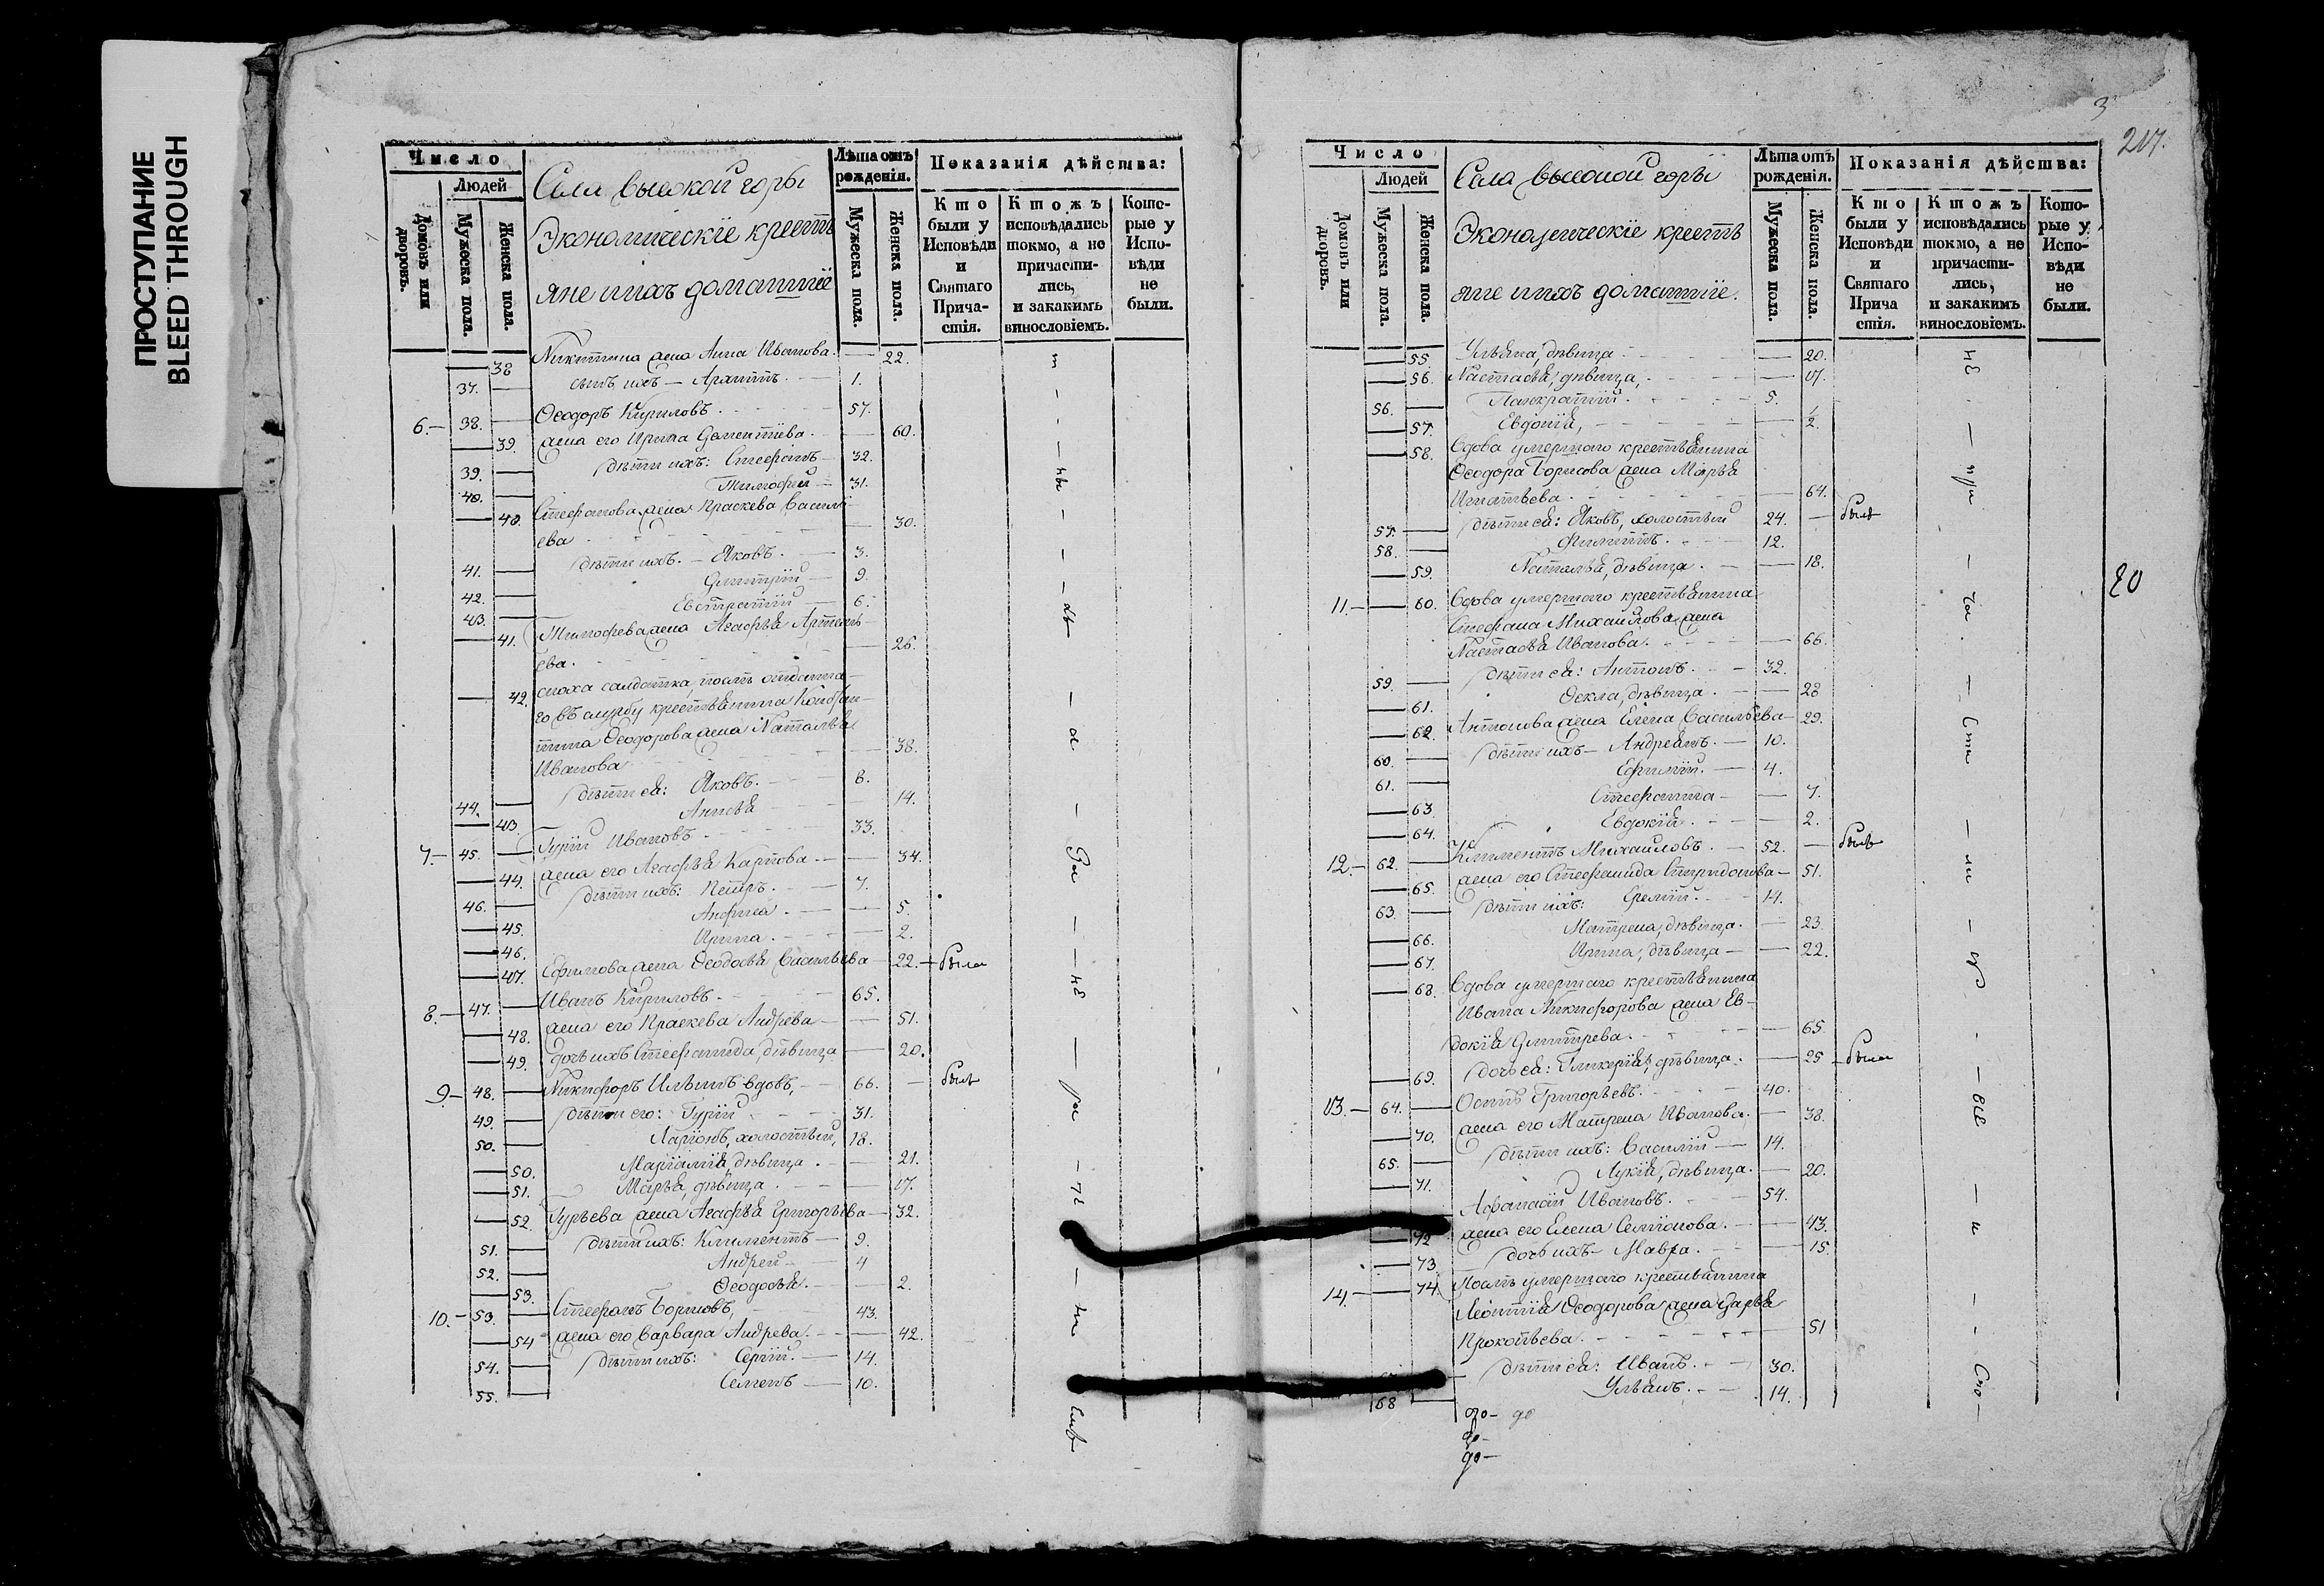 ПРОСТУПАНИЕ
BLEED THROUGH
Число
Людей
Домовъ или дворовъ.
Мужеска пола.
Женска пола.
Села высокой горы
Экономическіе кресть
яне ихъ домашніе
Лѣта отъ рожденія.
Мужеска пола.
Женска пола.
Показанія дѣйства:
Кто были у Исповѣди и Святаго Прича-стія.
Ктожъ исповѣдались токмо, а не причасти-лись, и закакимъ винословіемъ.
Кото-рые у Испо-вѣди не были.
38 Никитина жена Анна Иванова. 22.
37. сынъ ихъ 1.
6. 38. Ѳеодоръ Кириловъ. 57.
39. жена его Ирина Дементіева. 60.
39. дѣти ихъ: Стефанъ 32.
40. Тимофей 31.
40. Стефанова жена Праскева Василь
ева 30.
41. дѣти ихъ. Яковъ. 3.
42. Димитрій 9.
43. Евстратий 6.
41. Тимофева жена Агафья Артемь
ева. 26.
42. сноха салдатка, посль отданна
го въ службу крестьянина Констан
тина Ѳеодорова жена Наталья
Иванова 38.
44. дѣти ея: Яковъ. 8.
43 Анисья 14.
7. 45. Гурій Ивановъ 33.
44. жена его Агафья Карпова. 34.
46. дѣти ихъ: Петръ. 7.
45. Анфиса. 5.
46. Ирина. 2.
47. Ефимова жена Ѳеодосья Васильева 22. была
8. 47. Иванъ Кириловъ. 65.
48. жена его Праскева Андрева 51.
49. дочь ихъ Стефанида, дѣвица 20.
9. 48. Никифоръ Ильинъ вдовъ, 66. былъ
49. дѣти его: Гурій 31.
50. Ларіонъ, холостый, 18.
50. Маріамія, дѣвица. 21.
51. Марья, дѣвица. 17.
52. Гурьева жена Агафья Григорьева 32.
51. дѣти ихъ: Климентъ 9.
52. Андрей 4
53. Ѳеодосья. 2.
10. 53. Стефанъ Борисовъ, 43.
54 жена его Варвара Андрева. 42.
54. дѣти ихъ: Сергій. 14.
55. Семенъ 10.
3
217.
Число
Людей
Домовъ или дворовъ.
Мужеска пола.
Женска пола.
Села высокой горы
Экономическіе кресть
яне ихъ домашніе.
Лѣта отъ рожденія.
Мужеска пола.
Женска пола.
Показанія дѣйства:
Кто были у Исповѣди и Святаго Прича стія.
Ктожъ исповѣдались токмо, а не причасти-лись, и закакимъ винословіемъ.
Кото-рые у Испо-вѣди не были.
55 Ульяна, дѣвица 20.
56. Настасья, дѣвица, 17.
56. Панкратий. 5.
57. Евдокія, 2.
58. Вдова умершаго крестьянина
Ѳеодора Борисова жена Марья
Игнатьева. 64.
57. дѣти ея: Яковъ, холостый 24. былъ
58. Филиппъ. 12.
59. Наталья, дѣвица. 18.
20
11. 60. Вдова умершаго крестьянина
Стефана Михайлова жена
Настасья Иванова. 66.
59. дѣти ея: Антонъ. 32.
61. Ѳекла, дѣвица. 28
62. Антонова жена Елена Васильева 29.
60. дѣти ихъ Андреянъ. 10.
61. Ефимій. 4.
63 Стефанида 7.
64. Евдокия. 2.
12. 62. Климентъ Михаиловъ. 52. былъ
65. жена его Стефанида Спиридонова 51.
63. дѣти ихъ: Еремій. 14.
66. Матрена, дѣвица. 23.
67. Ирина, дѣвица 22.
68. Вдова умершаго крестьянина
Ивана Никифорова жена Ев
докія Димитрева. 65
69. дочь ея: Гликерія, дѣвица. 25 была
13. 64. Осипъ Григорьевъ. 40.
70. жена его Матрена Иванова. 38.
65. дѣти ихъ: Василій 14.
71. Лукія, дѣвица. 20.
Афанасій Ивановъ. 54.
72 жена его Елена Семіонова. 43.
73. дочь ихъ Мавра. 15.
14. 74. Посль умершаго крестьянина
Леонтія Ѳеодорова жена Дарья
Прокопьева. 51
дѣти ея: Иванъ. 30.
68 Ульянъ. 14.
до
до